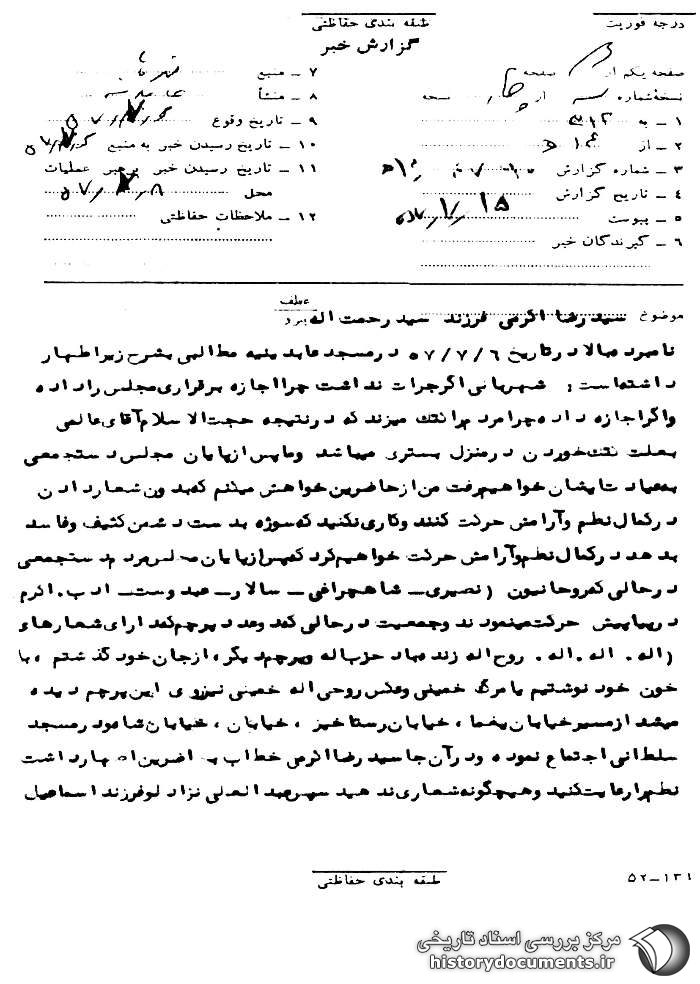 درجه فوریت
طبقه بندی حفاظتی
گزارش خبر
صفحه یکم از صفحه
نسخهٔ شماره از نسخه
۱ – به ۳۱۲
۲ – از
۳ – شماره گزارش
۴ – تاریخ گزارش
۵ – پیوست
۶ – گیرندگان خبر
۷ – منبع
۸ – منشأ
۹ – تاریخ وقوع
۱۰ – تاریخ رسیدن خبر به منبع
۱۱ – تاریخ رسیدن خبر برهبر عملیات
محل ۵۷/۷/۸
۱۲ – ملاحظات حفاظتی
موضوع سید رضا اکرمی فرزند سید رحمت اله
عطف
پیرو
نامبرده بالا در تاریخ ۵۷/۷/۶ در مسجد عابدینیه مطالبی بشرح زیر اظهار
داشته است : شهربانی اگر جرات نداشت چرا اجازه برقراری مجلس را داده
و اگر اجازه داده چرا مردم را کتک میزند که در نتیجه حجت الاسلام آقای عالمی
بعلت کتک خوردن در منزل بستری میباشد و ما پس از پایان مجلس دستجمعی
بعیادت ایشان خواهیم رفت من از حاضرین خواهش میکنم که بدون شعار دادن
در کمال نظم و آرامش حرکت کنند و کاری نکنید که سوژه بدست دشمن کثیف و فاسد
بدهد در کمال نظم و آرامش حرکت خواهیم کرد که پس از پایان مجلس مردم دستجمعی
در حالی که روحانیون (نصیری – شاهچراغی – سالار – عبدوست – ادب . اکرم
در پیاپیش حرکت مینمودند و جمعیت در حالی که دو عدد پرچم که دارای شعارهای
(اله . اله . اله . روح اله زنده باد حزب اله و پرچم دیگر ، از جان خود گذشتم ، با
خون خود نوشتیم یا مرگ خمینی و عکس روحی اله خمینی نیز روی این پرچم دیده
میشد از مسیر خیابان یغما ، خیابان رستاخیز ، خیابان ، خیابان شاه در مسجد
سلطانی اجتماع نموده و در آن جا سید رضا اکرمی خطاب به اضرین اظهار داشت
نظم را رعایت کنید و هیچگونه شعاری ندهید سپس عبدالعلی نژاد لو فرزند اسماعیل
طبقه بندی حفاظتی
۵۲–۱۳۱
مرکز بررسی اسناد تاریخی
historydocuments.ir